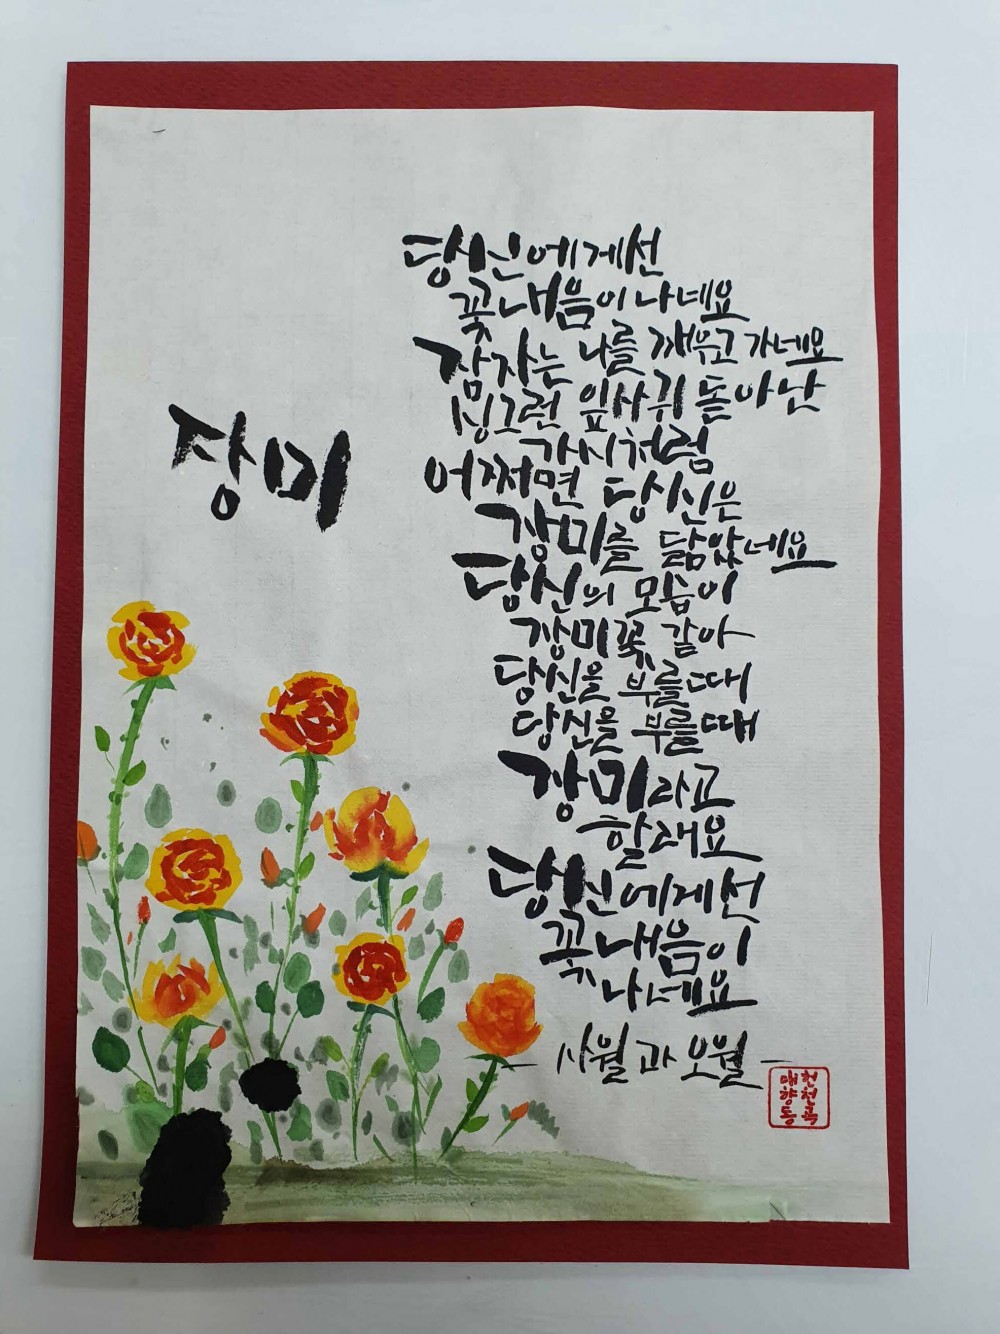 장미
당신에게선
꽃내음이 나네요
잠자는 나를 깨우고 가네요
싱그런 잎사귀 돋아난
가시처럼
어쩌면 당신은
장미를 닮았네요
당신의 모습이
장미꽃 같아
당신을 부를때
당신을 부를때
장미라고
할래요
당신에게선
꽃내음이
나네요
- 사월과 오월 -